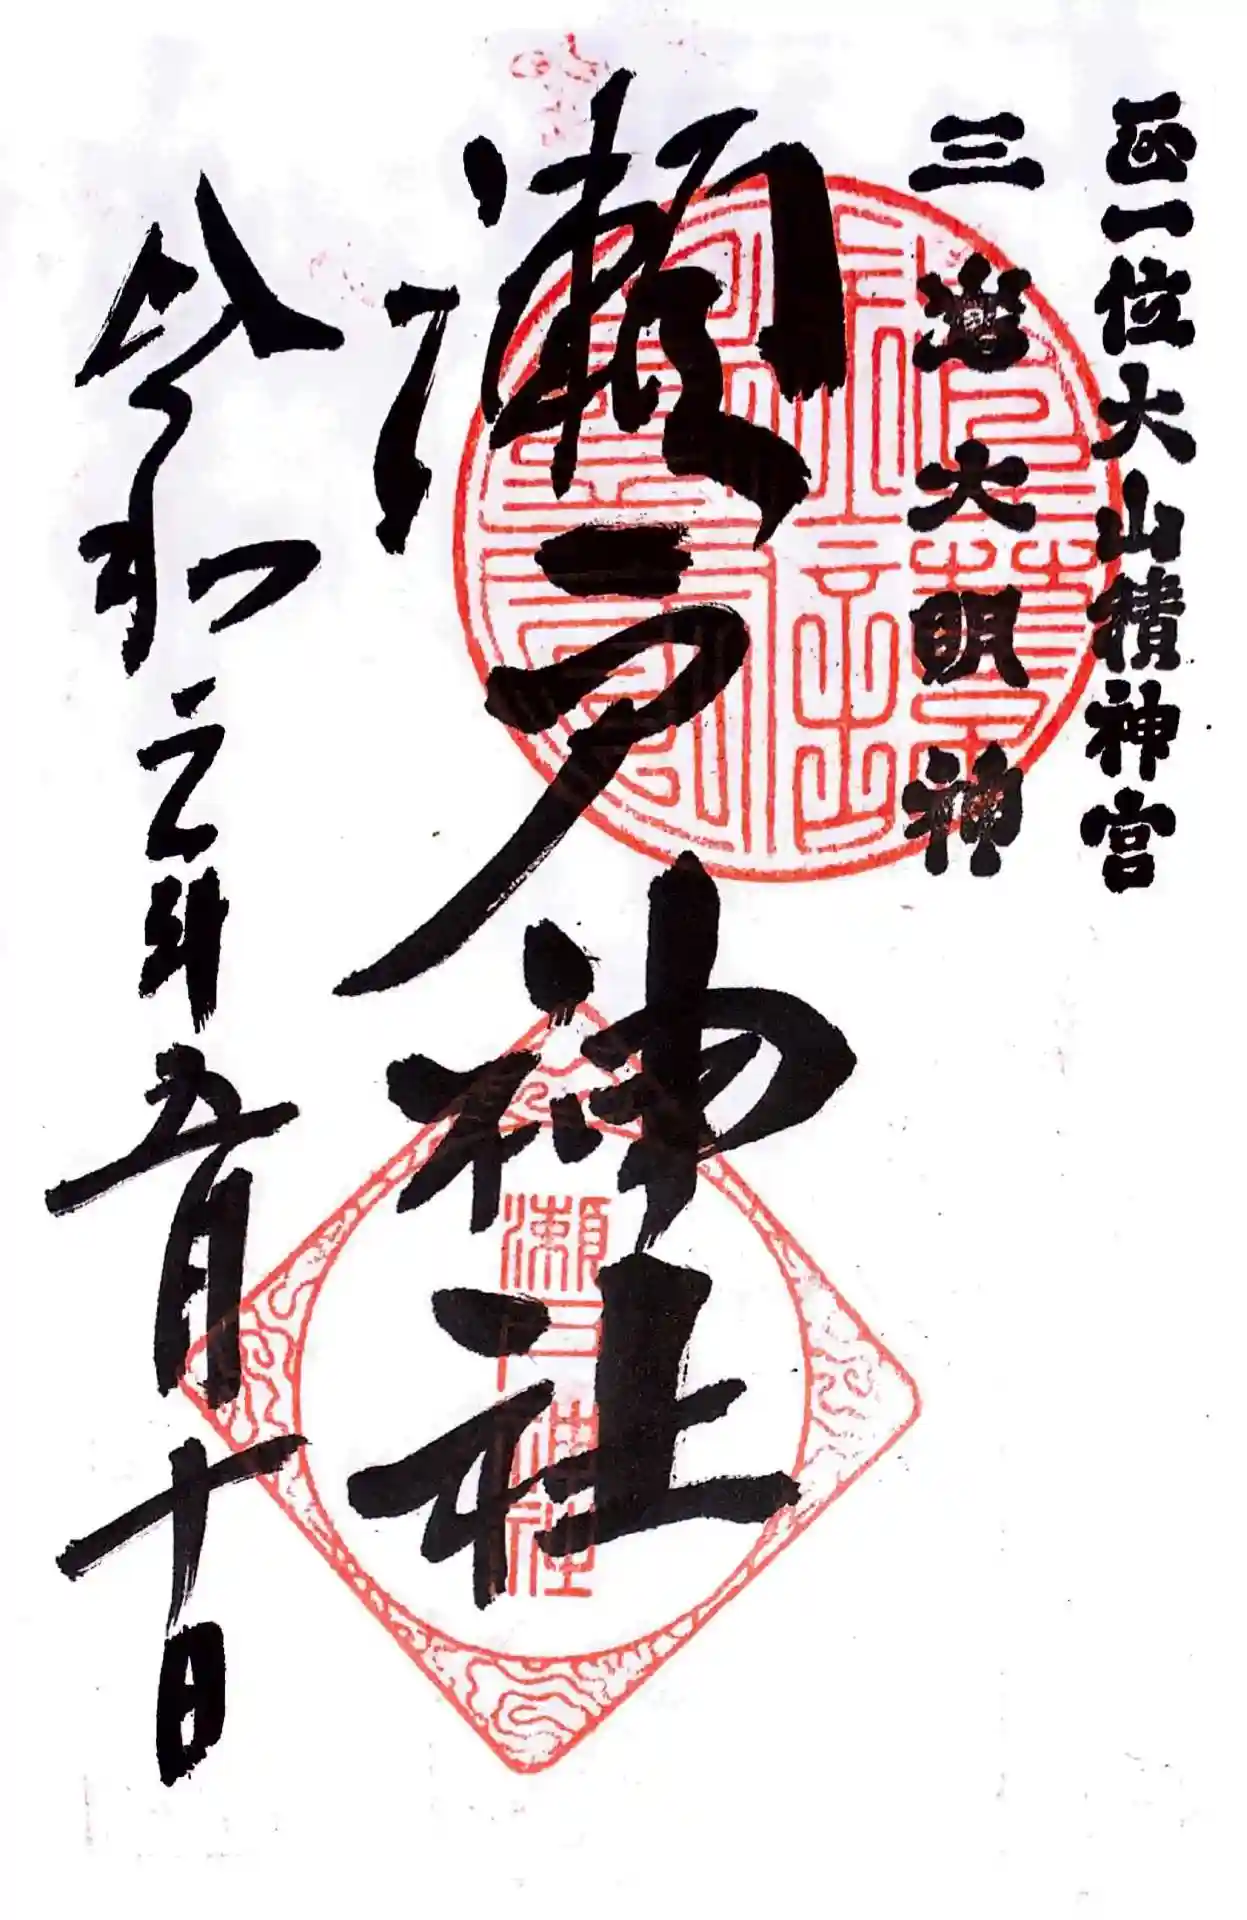 正一位大山積神宮
三嶌大明神
瀬戸神社
瀬戸神社
令和元年五月十日